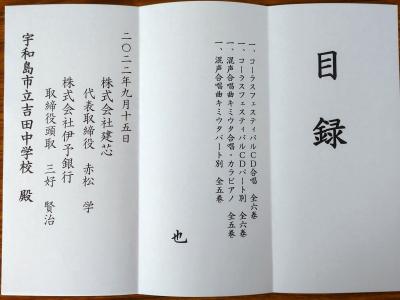 目録
一、コーラスフェスティバルCD合唱 全六巻
一、コーラスフェスティバルCDパート別 全六巻
一、混声合唱曲キミウタ合唱・カラピアノ 全五巻
一、混声合唱曲キミウタパート別 全五巻
也
二〇二二年九月十五日
株式会社建芯
代表取締役 赤松 学
株式会社伊予銀行
取締役頭取 三好 賢治
宇和島市立吉田中学校 殿